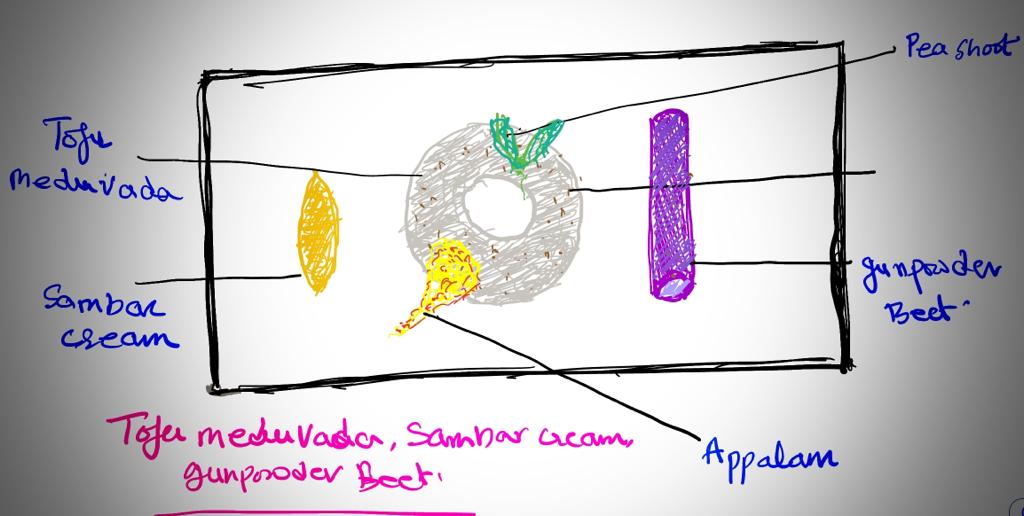 Pea shoot
Tofu
meduvada
Sambar
cream
gunpowder
Beet.
Appalam
Tofu meduvada, Sambar cream,
gunpowder Beet.